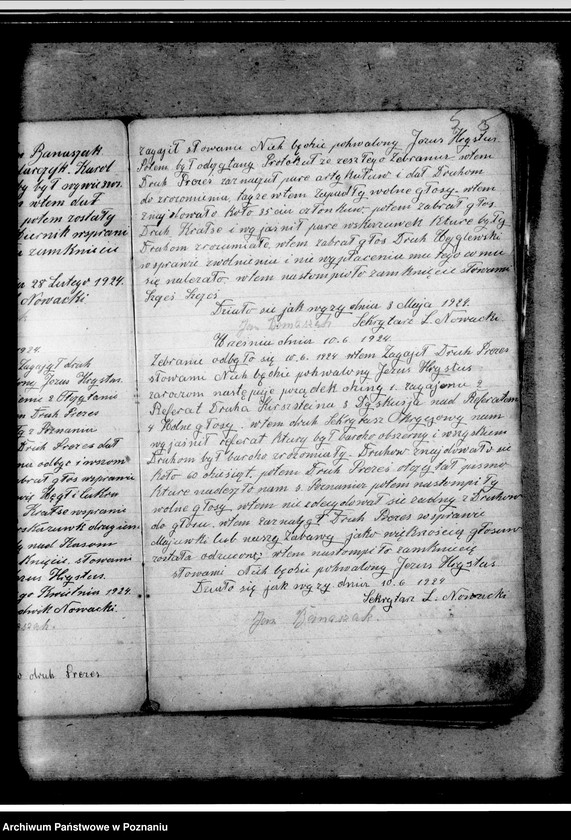 Banaszak
Karol
by był
wtem dał
potem zostały
w sprawi
zamknięcie
28 Lutego 1924.
Nowacki
1924.
Zagajył druh
Jezus Hrystus.
Druh Prezes
z Poznaniu
Druh Prezes dał
Kratse wsprawie
nad Kasom
słowami
Jezus Hrystus.
Kwietnia 1924.
Ludwik Nowacki.
druh Prezes
5
zagajił słowamu Niech będzie pohwalony Jezus Hrystus
Potem był odczytany Protokuł ze zeszłego Zebranie, wtem
Druh Prezes zaznaczuł pare artykułuw i dał Druhom
do zrozuminiu, także wtem zapadły wolne głosy. wtem
znajdowało koło 35ciu członkuw, potem zabrał głos
Druh Kratse i wyjasnił pare wskazuwek Kture były
Druhom zrozumiałe, wtem zabrał głos Druh Hyglewski
wsprawie zwolnieniu i nie wypłaceniu mu tego co mu
się nalezało, wtem nastompiło zamknięcie słowami
Cześć Cześć
Działo sie jak wyzy dniu 3 Maja 1924.
Jan Banaszak Sekrytarz L. Nowacki
Wrzesniu dniu 10.6.1924.
Zebraniu odbyło się 10.6.1924 wtem Zagajił Druh Prezes
słowami Niech będzie pohwalony Jezus Hrystus
zarazom następuje porządek obrny 1. zagajeniu 2
Referat Druha Hirszteina 3 Dyskusja nad Referatem
4 Wolne głosy. wtem druh Sekrytarz Okręgowy nam
wyjasnił referat ktury był bardzo obszerny i wszystkim
Druhom był bardzo zrozumiały. Druhow znajdowało sie
koło 60 dziesiąt, potem Druh Prezes odczytał pismo
Kture nadeszło nam z Poznaniu potem nastompiły
wolne głosy wtem nie zdecydował sie zadny z Druhow
do głosu, wtem zaznaczył Druh Prezes wsprawie
Majuwki lub naszy Zabawy jako większością głosuw
została odzucony; wtem nastompiło zamknięcie
słowami Niech będzie pohwalony Jezus Hrystus
Działo się jak wyzy dniu 10.6.1924
Sekrytarz L. Nowacki
Jan Banaszak.
Archiwum Państwowe w Poznaniu